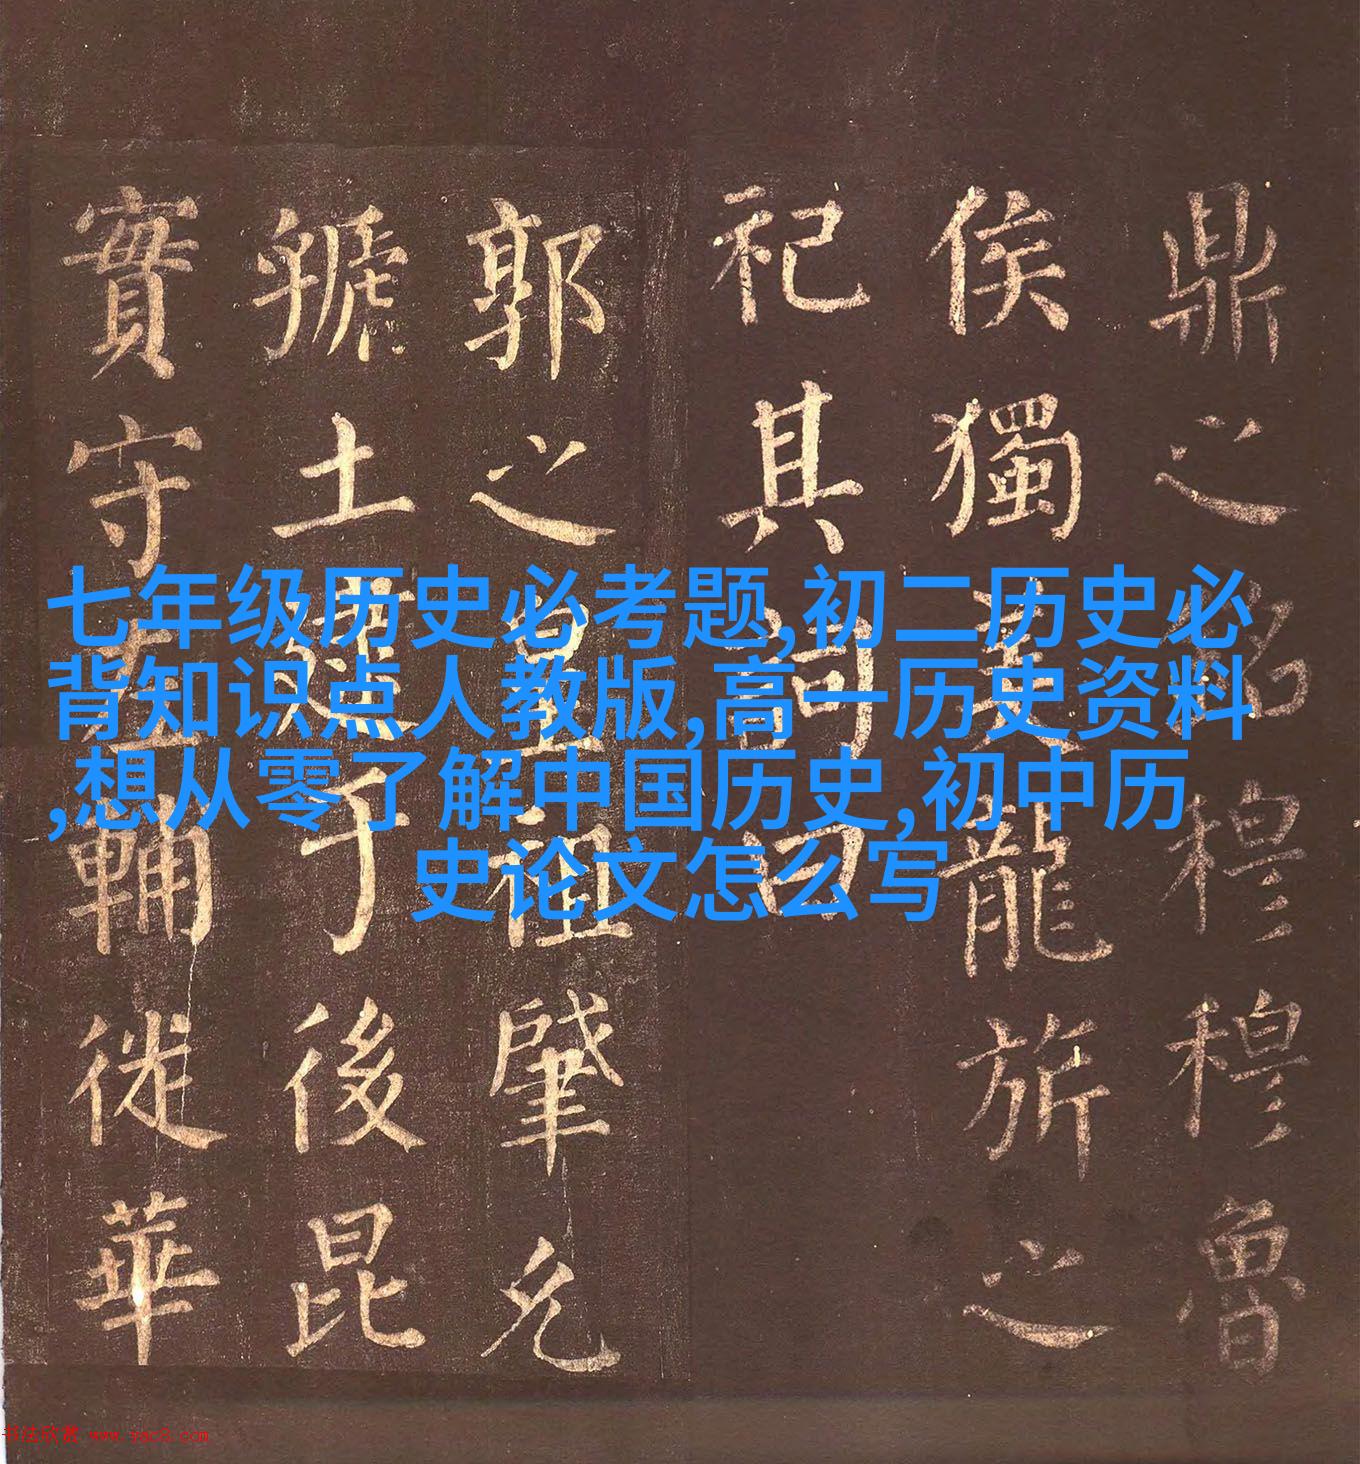 七年级历史必考题,初二历史必
背知识点人教版,高一历史资料
,想从零了解中国历史,初中历
史论文怎么写
鼎之銘穆穆魯
侯獨美龍旂之
祀其詞曰
郭之皇祖肇允
虢土于後昆
實守左輔徙華
书法欣赏 www.yac8.com